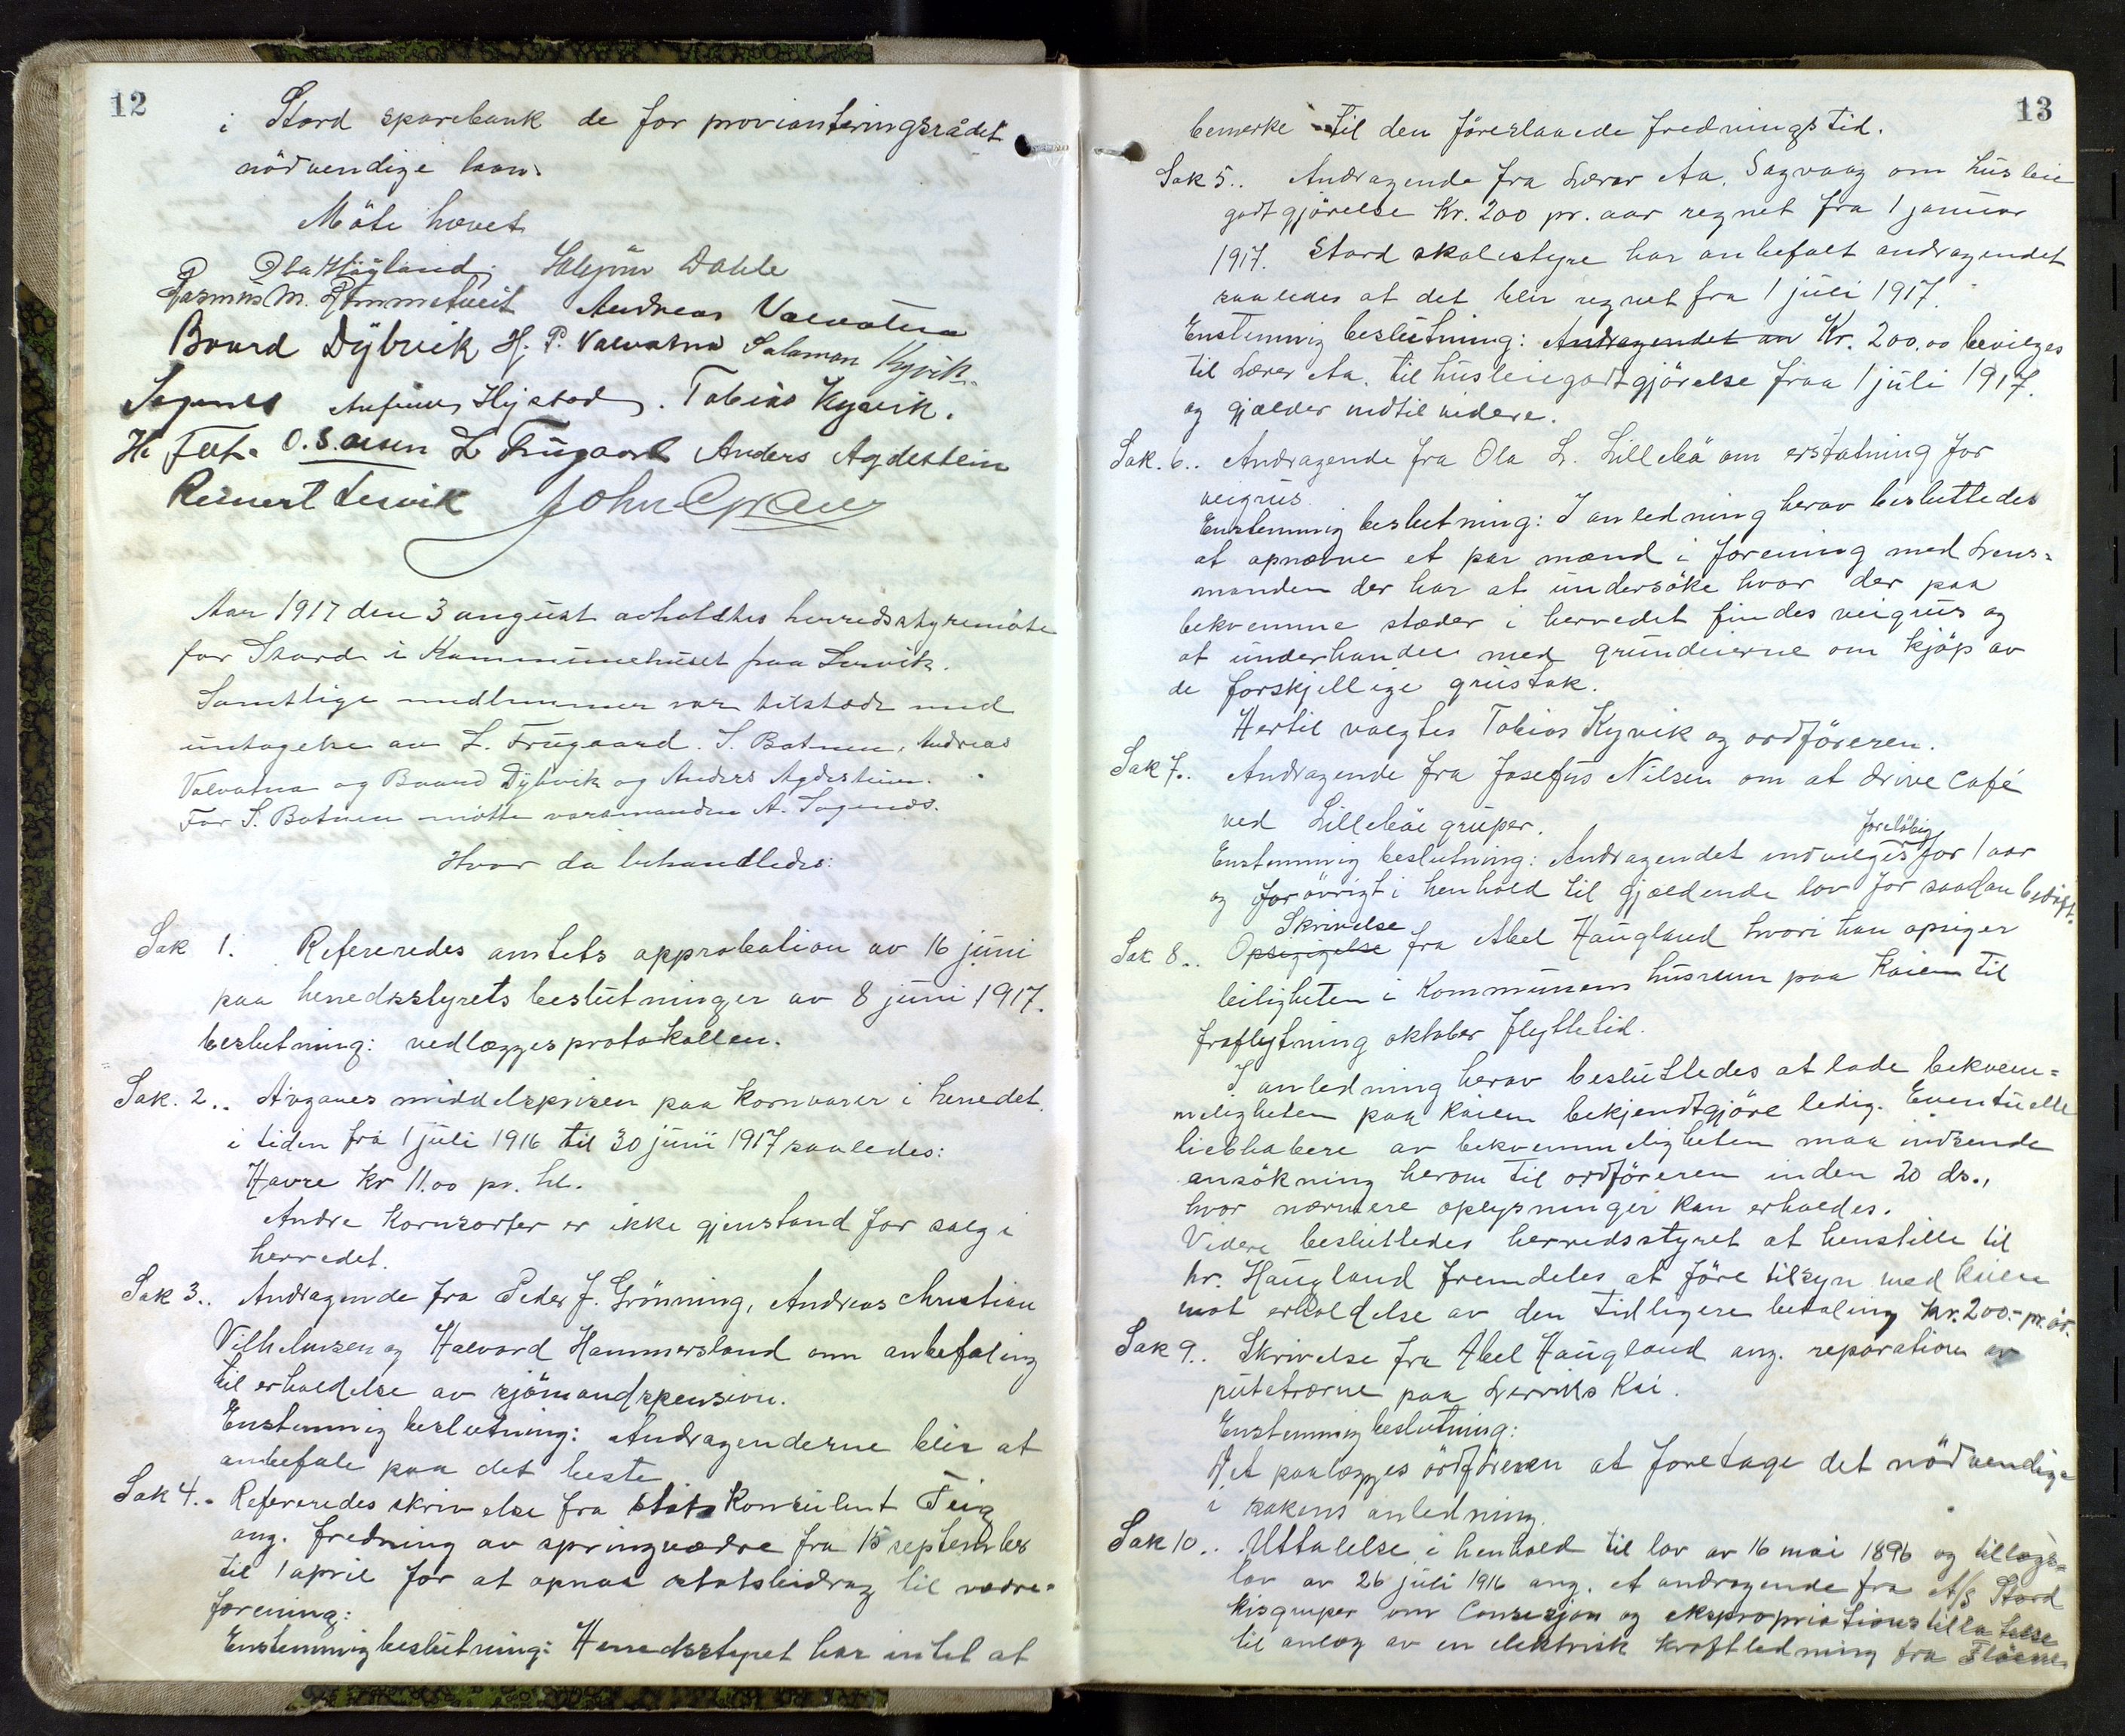 12
i Stord sparebank de for provianteringsrådet
nödvendige laan.
Möte hævet
Ola Högland. Halgjön Dahle
Rasmus M. Rommetveit Andreas Valvatna
Baard Dÿbvik H. P. Valvatna Salamon Kyvik.
Sagenes Anfinn Hystad. Tobias Kyvik.
H. Tveit. O. S. Olsen L Frugaard Anders Agdestein
Reinert Lervik John Græe
Aar 1917 den 3 august avholdtes herredsstyremöte
for Stord i Kommunehuset paa Lervik.
Samtlige medlemmer var tilstede med
undtagelse av L. Frugaard. S. Batnen, Andreas
Valvatna og Baard Dÿbvik og Anders Agdestein.
For S. Batnen mötte varamanden A. Sagenes.
Hvor da behandledes:
Sak 1. Refereredes amtets approbation av 16 juni
paa herredsstyrets beslutninger av 8 juni 1917.
beslutning: vedlægges protokollen.
Sak. 2.. Avgaves middelsprisen paa kornvarer i herredet.
i tiden fra 1 juli 1916 til 30 juni 1917 saaledes:
Havre Kr 11.00 pr. hl.
Andre Kornsorter er ikke gjenstand for salg i
herredet.
Sak 3.. Andragende fra Peder J. Grönning, Andreas Christian
Vilhelmsen og Halvard Hammersland om anbefaling
til erholdelse av sjömandspension.
Enstemmig beslutning: Andragenderne blir at
anbefale paa det beste
Sak 4.. Refereredes skrivelse fra statskonsulent Teig
ang. fredning av springvædre fra 15 september
til 1 april for at opnaa statsbidrag til vædre-
forening:
Enstemmig beslutning: Herredsstyret har intet at
13
bemerke til den föreslaaede fredningstid.
Sak 5.. Andragende fra Lærer Aa. Sagvaag om husleie
godtgjörelse Kr. 200 pr. aar regnet fra 1 januar
1917. Stord skolestyre har anbefalt andragendet
saaledes at det blir regnet fra 1 juli 1917.
Enstemmig beslutning: Andragendet an Kr. 200.00 bevilges
til Lærer Aa. til husleiegodtgjörelse fraa 1 juli 1917.
og gjælder indtil videre.
Sak. 6.. Andragende fra Ola L. Lillebö om erstatning for
veigrus.
Enstemmig beslutning: I anledning herav besluttedes
at opnævne et par mænd i forening med Lens-
manden der har at undersöke hvor der paa
bekvemme stæder i herredet findes veigrus og
at underhandle med grundeierne om kjöp av
de forskjellige grustak.
Hertil valgtes Tobias Kyvik og ordföreren.
Sak 7.. Andragende fra Josefus Nilsen om at drive café
ved Lillebö gruper.
forelöbig
Enstemmig beslutning: Andragendet indvilges for 1 aar
og forövrigt i henhold til gjældende lov for saadan bedrift.
Skrivelse
Sak 8.. Opsigigelse fra Abel Haugland hvori han opsiger
leiligheten i Kommunens husrum paa Kaien til
fraflytning oktober flyttetid.
I anledning herav besluttedes at lade bekvem-
meligheten paa kaien bekjendtgjöre ledig. Eventuelle
liebhabere av bekvemmeligheten maa indsende
ansökning herom til ordföreren inden 20 ds.,
hvor nærmere oplysninger kan erholdes.
Videre besluttedes herredsstyret at henstille til
hr. Haugland fremdeles at före tilsyn med kaien
mot erholdelse av den tidligere betaling kr. 200.- pr. år.
Sak 9.. Skrivelse fra Abel Haugland ang. reparation av
putetrærne paa Lerviks Kai.
Enstemmig beslutning:
Det paalægges ordföreren at foretage det nödvendige
i sakens anledning.
Sak 10.. Uttalelse i henhold til lov av 16 mai 1896 og tillægs-
lov av 26 juli 1916 ang. et andragende fra A/S Stord
kisgruper om Consesjon og ekspropriationstillatelse
til anlæg av en elektrisk kraftledning fra